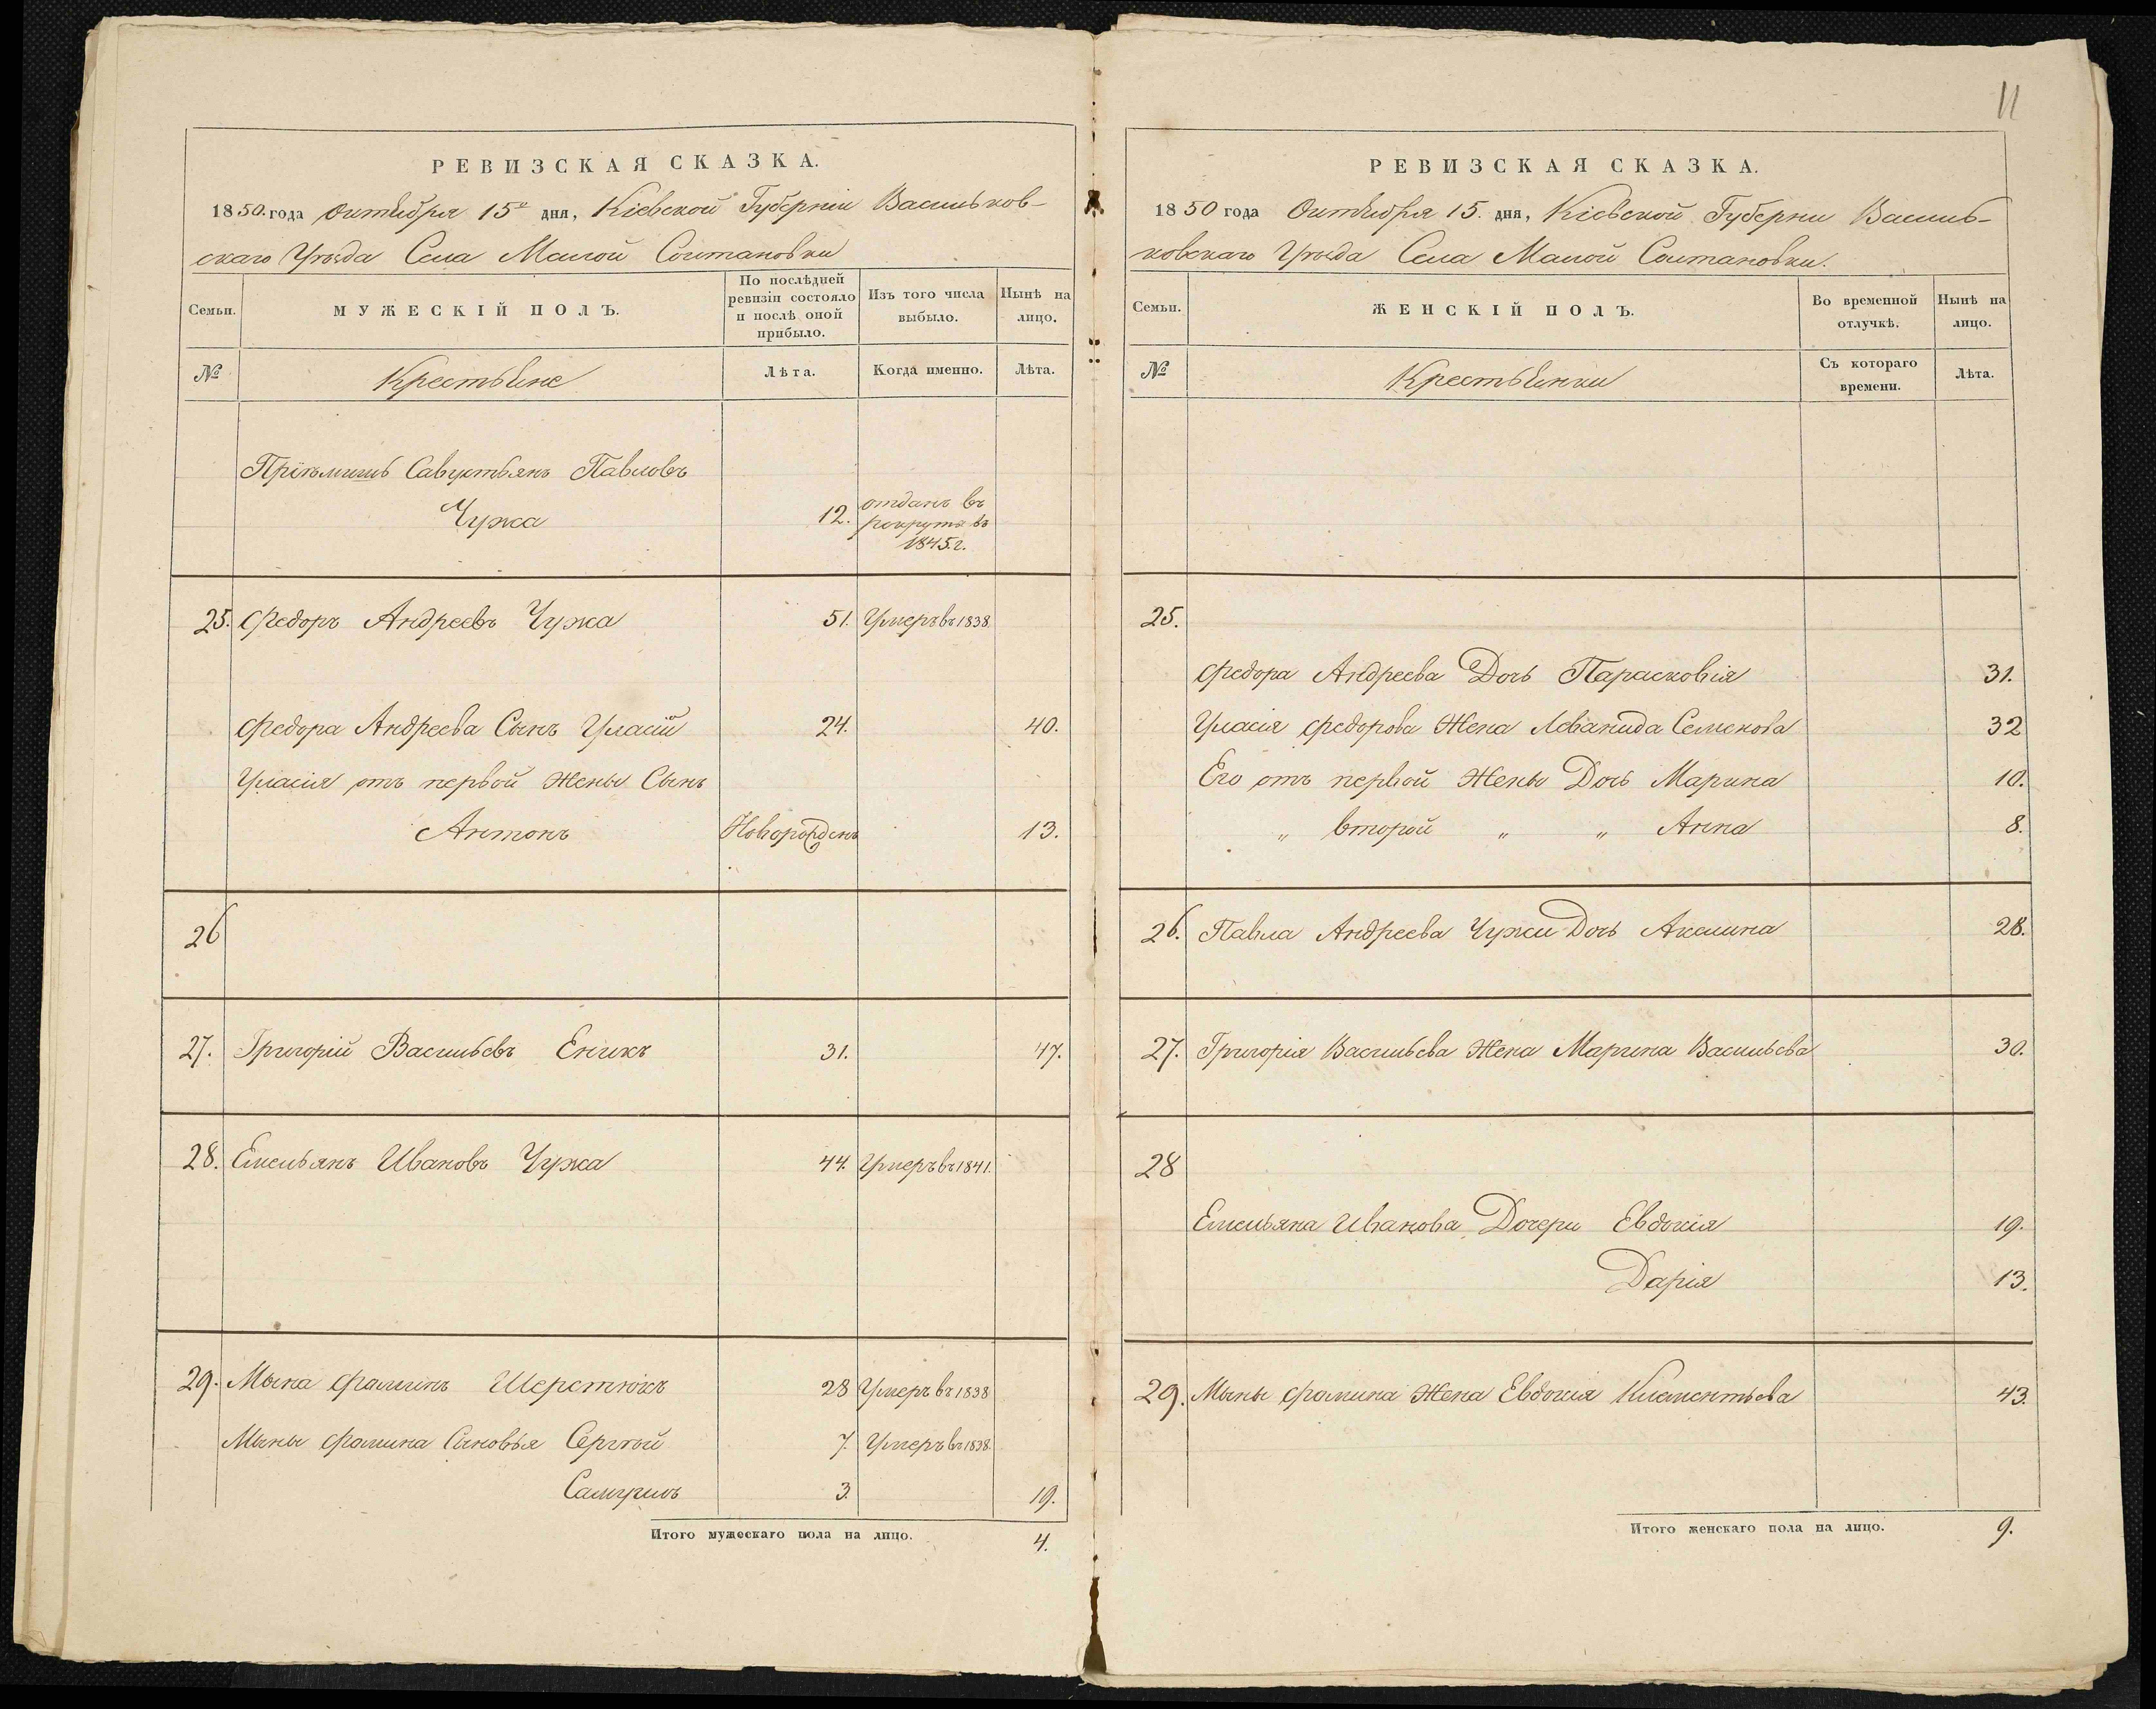 РЕВИЗСКАЯ СКАЗКА.
1850. года Октября 15го дня, Кіевской Губерніи Васильков-
скаго Уѣзда Села Малой Солтановки
Семьи.
МУЖЕСКІЙ ПОЛЪ.
По послѣдней
ревизіи состояло
и послѣ оной
прибыло.
Изъ того числа
выбыло.
Нынѣ на
лицо.
№
Крестьяне
Лѣта.
Когда именно.
Лѣта.
Пріемышъ Павловъ
Чужа 12. отданъ въ
рекруты въ
1845. г.
25. Федоръ Андреевъ Чужа 51. Умеръ въ 1838.
Федора Андреева Сынъ Уласій 24. 40.
Уласія отъ первой Жены Сынъ
Антонъ Новорожденъ 13.
26
27. Григорій Васильевъ Еникъ 31. 47.
28. Емельянъ Ивановъ Чужа 44. Умеръ въ 1841.
29. Мына Фоминъ Шерстюкъ 28 Умеръ въ 1838
Мыны Фомина Сыновья Сергѣй 7. Умеръ въ 1838.
Самуилъ 3. 19.
Итого мужескаго пола на лицо. 4.
11
РЕВИЗСКАЯ СКАЗКА.
1850 года Октября 15. дня, Кіевской Губерни Василь-
ковскаго Уѣзда Села Малой Солтановки.
Семьи.
ЖЕНСКІЙ ПОЛЪ.
Во временной
отлучкѣ.
Нынѣ на
лицо.
№
Крестьянки
Съ котораго
времени.
Лѣта.
25.
Федора Андреева Дочь Парасковія 31.
Уласія Федорова Жена Леванида Семенова 32
Его отъ первой Жены Дочь Марина 10.
„ второй „ „ Анна 8.
26. Павла Андреева Чужи Дочь Акилина 28.
27. Григорія Васильева Жена Марина Васильева 30.
28
Емельяна Иванова Дочери Евдокія 19.
Дарія 13.
29. Мыны Фомина Жена Евдокія Климентьева 43.
Итого женскаго пола на лицо. 9.